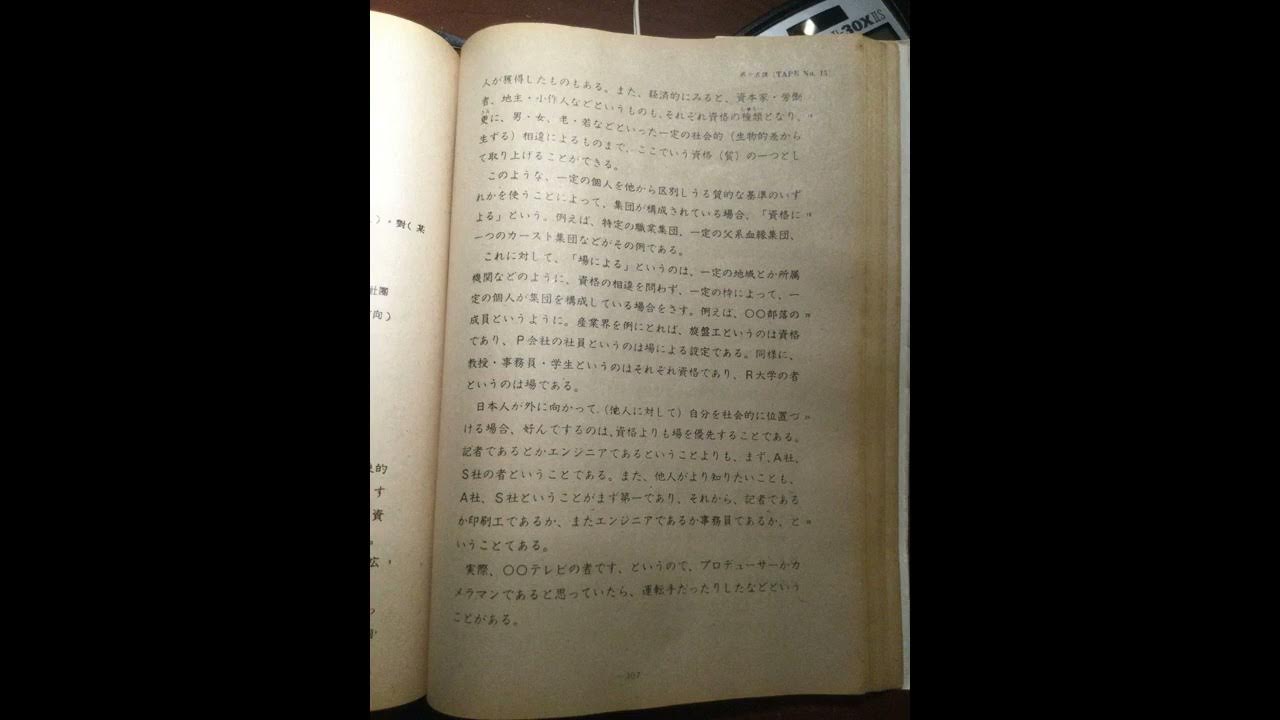 30XⅡS
第十五課〔TAPE No. 15〕
人が獲得したものもある。また、経済的にみると、資本家・労働
者、地主・小作人などというものも、それぞれ資格の種類となり、
更に、男・女、老・若などといった一定の社会的(生物的差から
生ずる)相違によるものまで、ここでいう資格(質)の一つとし
て取り上げることができる。
このような、一定の個人を他から区別しうる質的な基準のいず
れかを使うことによって、集団が構成されている場合、「資格に
よる」という。例えば、特定の職業集団、一定の父系血縁集団、
一つのカースト集団などがその例である。
これに対して、「場による」というのは、一定の地域とか所属
機関などのように、資格の相違を問わず、一定の枠によって、一
定の個人が集団を構成している場合をさす。例えば、〇〇部落の
成員というように。産業界を例にとれば、旋盤工というのは資格
であり、P会社の社員というのは場による設定である。同様に、
教授・事務員・学生というのはそれぞれ資格であり、R大学の者
というのは場である。
日本人が外に向かって、(他人に対して)自分を社会的に位置づ
ける場合、好んでするのは、資格よりも場を優先することである。
記者であるとかエンジニアであるということよりも、まず、A社、
S社の者ということである。また、他人がより知りたいことも、
A社、S社ということがまず第一であり、それから、記者である
か印刷工であるか、またエンジニアであるか事務員であるか、と
いうことてある。
実際、〇〇テレビの者です、というので、プロデューサーかカ
メラマンであると思っていたら、運転手だったりしたなどという
ことがある。
—307
)・對(某
社團
向)
的
す
資
広,